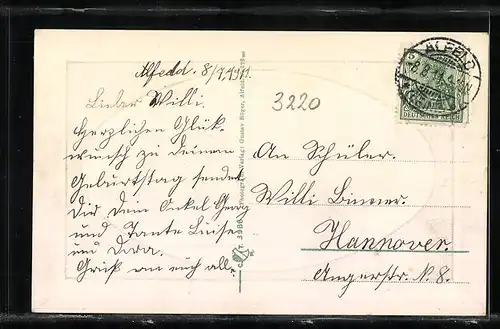 Alfeld. 8/7.1911.
Lieber Willi.
Herzlichen Glük
wunsch zu deinem
Geburtstag sendet
Dir Dein Onkel Georg
und Tante Luise
und Dora.
Gruß an euch alle.
Verlag: Gustav Böger, Alfeld
3220
ALFELD
DEUTSCHES REICH
An Schüler.
Willi
Hannover.
Angerstr. N. 8.